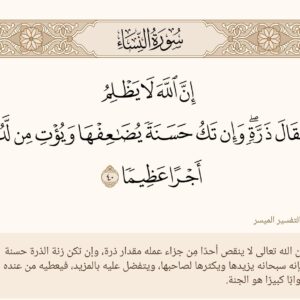 سُورَةُ النِّسَاءِ
إِنَّ ٱللَّهَ لَا يَظْلِمُ
قَالَ ذَرَّةٍۖ وَإِن تَكُ حَسَنَةً يُضَٰعِفْهَا وَيُؤْتِ مِن لَّدُ
أَجْرًا عَظِيمًا ٤٠
التفسير الميسر
ن الله تعالى لا ينقص أحدًا من جزاء عمله مقدار ذرة، وإن تكن زنة الذرة حسنة
إنه سبحانه يزيدها ويكثرها لصاحبها، ويتفضل عليه بالمزيد، فيعطيه من عنده
وابًا كبيرًا هو الجنة.